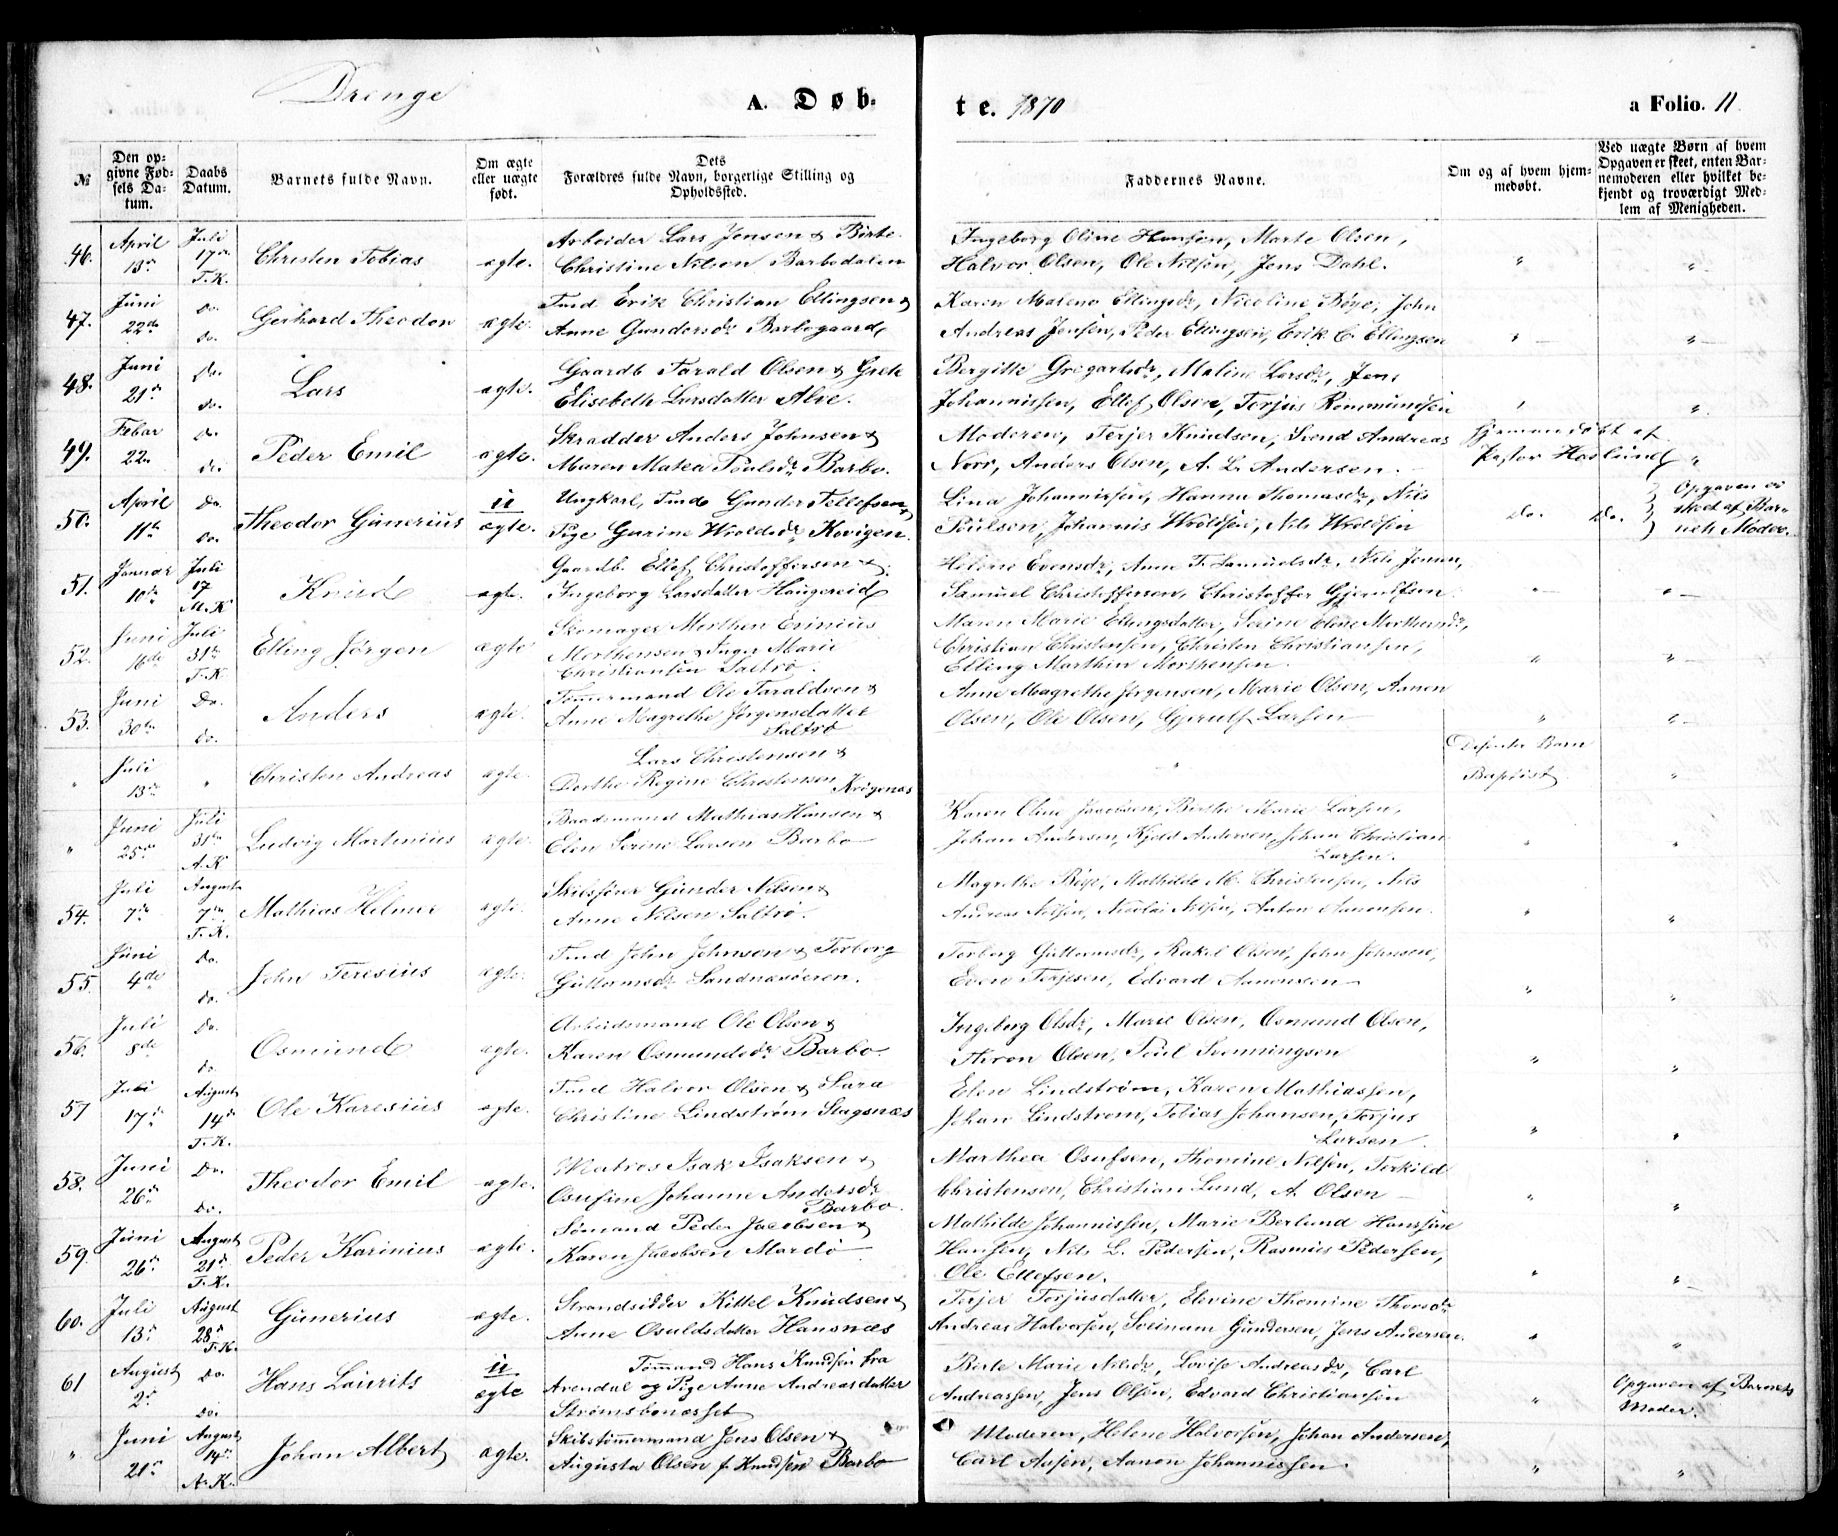 Drenge
A. Døb-
te. 1870
a Folio. 11.
№
Den op-
givne Fød-
sels Da-
tum.
Daabs
Datum.
Barnets fulde Navn.
Om ægte
eller uægte
født.
Dets
Forældres fulde Navn, borgerlige Stilling og
Opholdssted.
Faddernes Navne.
Om og af hvem hjem-
medøbt.
Ved uægte Børn af hvem
Opgaven er skeet, enten Bar-
nemoderen eller hvilket be-
kjendt og troværdigt Med-
lem af Menigheden.
46. April 13de Juli 17de T.K. Christen Tobias ægte.
Arbeider Lars Jensen & Birte
Christine Nilsen Barbodalen
Ingeborg Oline Hansen, Marte Olsen,
Halvor Olsen, Ole Nilsen, Jens Dahl.
47. Juni 22de do. do. Gerhard Theodor ægte.
Tind Erik Christian Ellingsen &
Anne Gundersdr Barbogaard
Karen Malene Ellingsdr, Nicoline Bøye, John
Andreas Jensen, Peder Ellingsen, Erik C. Ellingsen
48. Juni 21de Do. do. Lars ægte.
Gaardb Tarald Olsen & Grete
Elisebeth Larsdatter Alve.
Bergitte Gregartsdr, Maline Larsdr, Jens
Johannissen, Ellef Olsen, Terjus Rommundsen
49. Febar 22. do. do. Peder Emil ægte.
Skradder Anders Johnsen &
Maren Matea Poulsdr Barbo.
Moderen, Terjer Knudsen, Svend Andreas
Noor, Anders Olsen, A. L. Andersen.
Hjemmedøbt af
Pastor Haslund
50. April 11te Do. do. Theodor Gunerius u ægte.
Ungkarl, Tind Gunder Tellefsen &
Pige Gurine Wroldsdr Kovigen.
Lina Johannissen, Hanna Thomasdr, Nils
Poulsen, Johannis Wroldsen, Nils Wroldsen
Do. Do.
Opgaven er
skeet af Bar-
nets Moder.
51. Januar 10de Juli 17 M.K Knud ægte.
Gaardb. Ellef Christoffersen &
Ingeborg Larsdatter Haugereid
Helene Evensdr, Anne T. Samuelsdr, Nils Jensen,
Samuel Christoffersen, Christoffer Gjerulfsen
52. Juni 16de Juli 31te T.K Elling Jørgen ægte
Skomager Morthen Erinius
Morthensen & Inger Marie
Christiansen Saltrø.
Maren Marie Ellingsdatter, Serine Elene Morthensdr,
Christian Christensen, Christen Christiansen,
Elling Marthin Morthensen.
53. Juni 30te Do. do. Anders ægte.
Tømmermand Ole Taraldsen &
Anne Magrethe Jørgensdatter
Saltrø
Anne Magrethe Jørgensen, Marie Olsen, Aanon
Olsen, Ole Olsen, Gjerulf Larsen
" Juli 13de " Christen Andreas ægte.
Lars Christensen &
Dorthe Regine Christensen Krøgenæs
Desenter Barn
Baptist
" Juni 25de Juli 31te A.K Ludvig Martinius ægte
Baadsmand Mathias Hansen &
Elen Serine Larsen Barbo
Karen Oline Jacobsen, Berthe Marie Larsen,
Johan Andersen, Kjeld Andersen, Johan Christian
Larsen.
54. Juli 7de Augusts 7de T.K. Mathias Helmer ægte.
Skibsfører Gunder Nilsen &
Anne Nilsen Saltrø.
Magrethe Bøye, Mathilde M. Christensen, Nils
Andreas Nilsen, Nicolai Nilsen, Anton Aanonsen.
55. Juni 4de Do. do. John Teresius ægte.
Tind John Johnsen & Torborg
Guttormsdr Sandnæsøeren.
Torborg Guttormsdr, Rakel Olsen, John Johnsen,
Even Terjesen, Edvard Aanonsen
56. Juli 8de Do. do Osmund ægte.
Arbeidsmand Ole Olsen &
Karen Osmundsdr Barbo.
Ingeborg Olsdr, Marie Olsen, Osmund Olsen,
Aron Olsen, Poul Svenningsen
57 Juli 17de August 14de T.K. Ole Karesius ægte.
Tind Halvor Olsen & Sara
Christine Lindstrøm Slagsnæs
Elen Lindstrøm, Karen Mathiassen,
Johan Lindstrom, Tobias Johansen, Terjus
Larsen.
58. Juni 26de Do. Do. Theodor Emil ægte.
Matros Isak Isaksen &
Osufine Johanne Andersdr
Barbo.
Marthea Osufsen, Thomine Nilsen, Terkild
Christensen, Christian Lund, A. Olsen
59. Juni 26de August 21de T.K. Peder Karinius ægte.
Sømand Peder Jacobsen &
Karen Jacobsen Mardø
Mathilde Johannissen, Marie Berlund Hanssine
Hansen, Nils L. Pedersen, Rasmus Pedersen,
Ole Ellefsen.
60. Juli 13de August 28de T.K. Gunerius ægte.
Strandsidder Kittel Knudsen &
Anne Osuldsdatter Hansnæs
Terjer Terjusdatter, Elevine Thomine Thorsdr
Andreas Halvorsen, Sveinam Gundersen, Jens Andersen.
61 August 2de Do. Do. Hans Laurits u ægte
Tømmand Hans Knudsen fra
Arendal og Pige Anne Andreasdatter
Strømsbonæsset
Berte Marie Nilsdr, Lovise Andreasdr, Carl
Andreassen, Jens Olsen, Edvard Christiansen
Opgaven af Barnets
Moder.
" Juni 21de August 14de A.K. Johan Albert ægte.
Skibstømmermand Jens Olsen &
Augusta Olsen f. Knudsen Barbo
Moderen, Helene Halvorsen, Johan Andersen,
Carl Ausen, Aanon Johannissen.